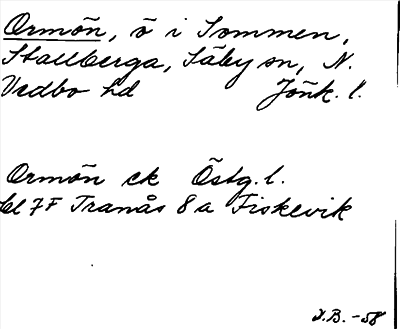 Ormön, ö i Sommen,
Stallberga, Säby sn, N.
Vedbo hd Jönk. l.
Ormön ek Östg. l.
bl 7F Tranås 8a Fiskevik
I.B. -58